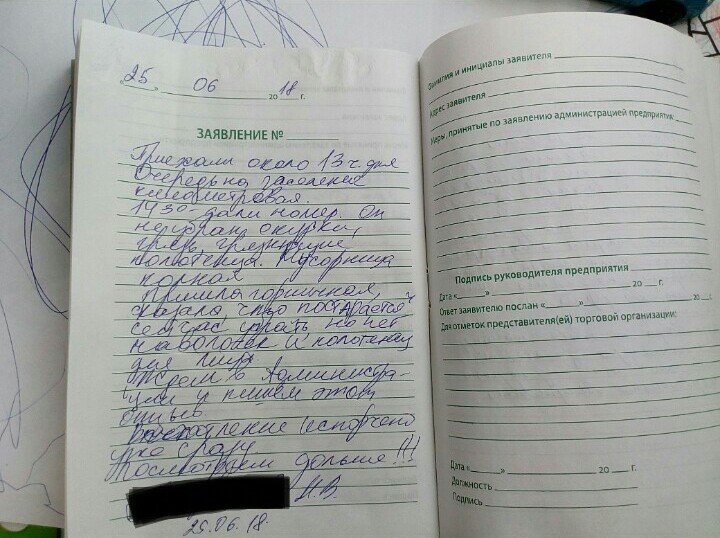 «25» 06 2018 г.
ЗАЯВЛЕНИЕ №
Приехали около 13 ч дня
Очередь на заселение
километровая.
19 30 дали номер. Он
не убран, окурки,
грязь, грязнющие
полотенца. Мусорница
полная
Пришла горничная,
сказала, что постарается
сейчас убрать, но нет
наволочек и полотенец
для лица
Ждем в Администра-
ции и пишем этот
отзыв
Впечатление испорчено
уже сразу.
Посмотрим дальше!!!
Н.В.
25.06.18.
Фамилия и инициалы заявителя
Адрес заявителя
Меры, принятые по заявлению администрацией предприятия:
Подпись руководителя предприятия
Дата «    »    20    г.
Ответ заявителю послан «    »    20    г.
Для отметок представителя(ей) торговой организации:
Дата «    »    20    г.
Должность
Подпись